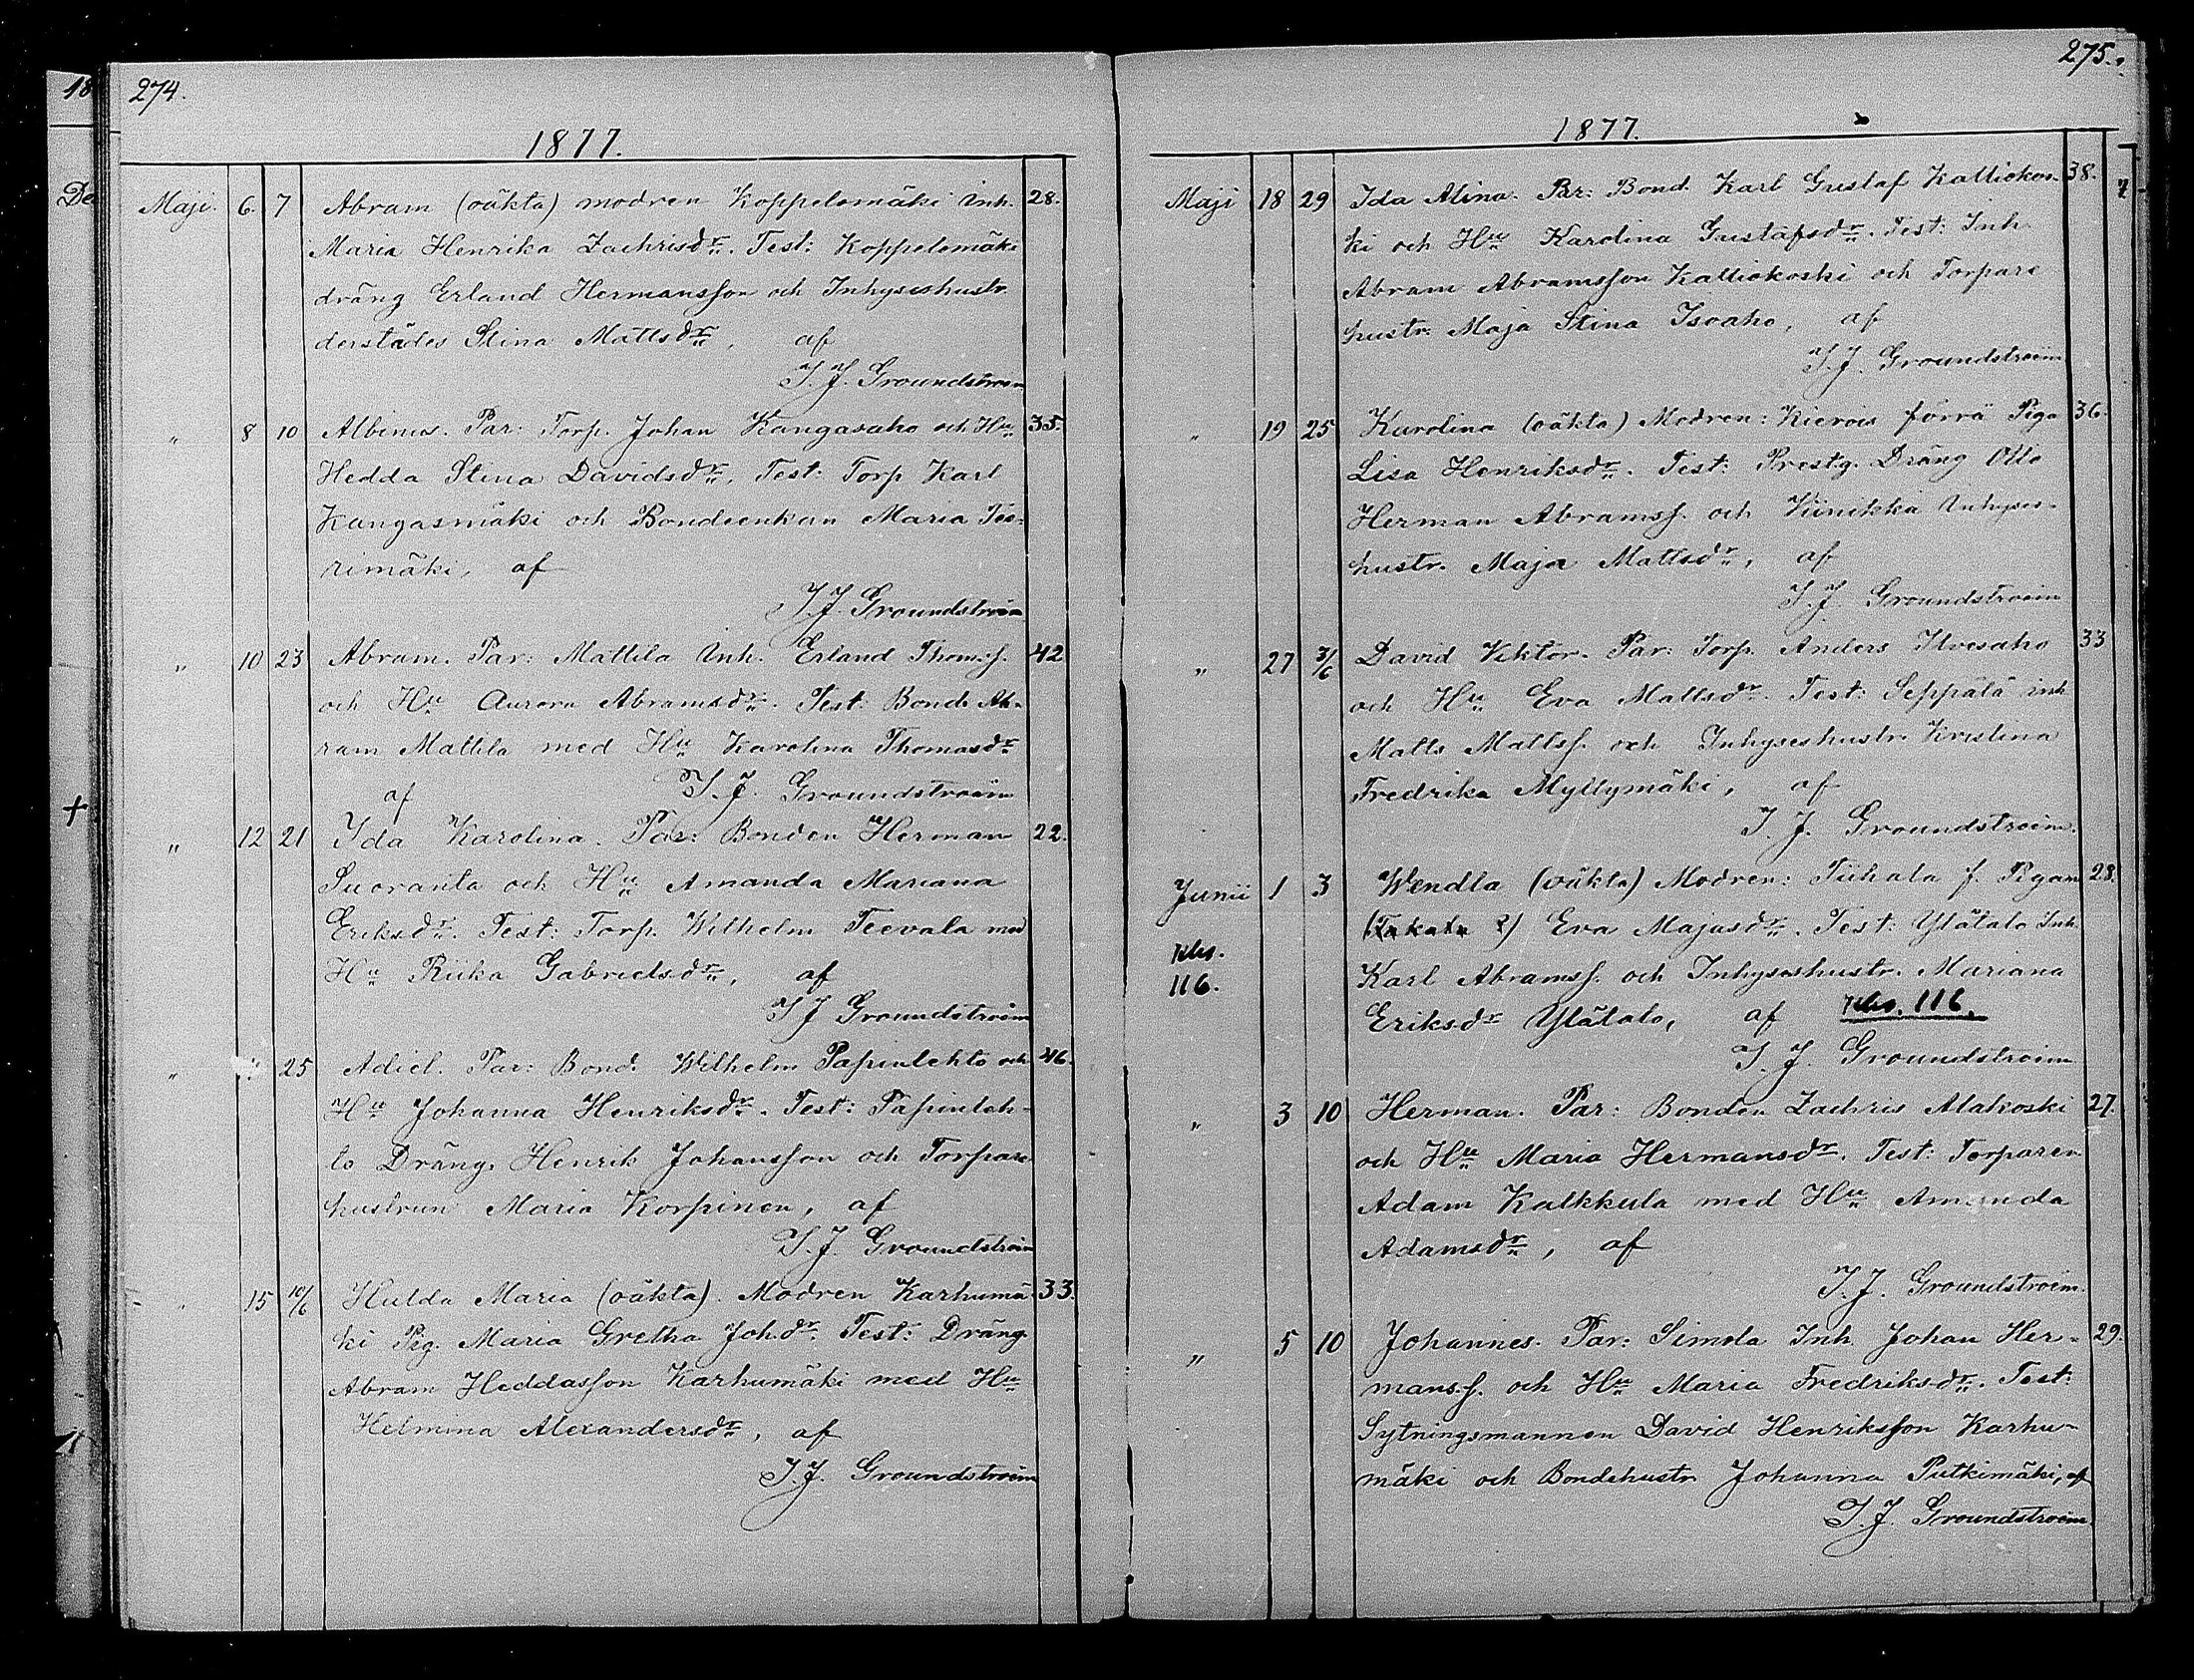 18
De
274.
1877.
Maji. 6. 7 Abram (oäkta) modren Koppelomäki inh. 28.
Maria Henrika Zachrisdr. Test: Koppelomäki
dräng Erland Hermansson och Inhyseshustr.
derstädes Stina Mattsdr, af
I. J. Groundstroem
" 8 10 Albinus. Par: Torp. Johan Kangasaho och Hu 35.
Hedda Stina Davidsdr, Test: Torp Karl
Kangasmäki och Bondeenkan Maria Tee-
rimäki, af
I. J. Groundstroem
" 10 23 Abram. Par: Mattila Inh. Erland Thoms. 42
och Hu Aurora Abramsdr. Test: Bond Ab-
ram Mattila med Hu Karolina Thomasdr
af I. J. Groundstroem
" 12 21 Ida Karolina. Par: Bonden Herman 22.
Suoranta och Hu Amanda Mariana
Eriksdr. Test: Torp. Wilhelm Teevala med
Hu Riika Gabrielsdr, af
I J Groundstroem
" " 25 Adiel. Par: Bond. Wilhelm Papinlehto och 46.
Hu Johanna Henriksdr. Test: Papinleh-
to Dräng. Henrik Johansson och Torpare
hustrun Maria Korpinen, af
I. J. Groundstroem
" 15 10/6 Hulda Maria (oäkta). Modren Karhumä 33.
ki Pig. Maria Gretha Joh.dr. Test: Dräng.
Abram Heddasson Karhumäki med Hu
Helmina Alexandersdr, af
I. J. Groundstroem
275.
1877.
Maji 18 29 Ida Alina. Par: Bond. Karl Gustaf Kalliokos- 38.
ki och Hu Karolina Gustafsdr. Test: Inh
Abram Abramsson Kalliokoski och Torpare
hustr. Maja Stina Isoaho, af
I. J. Groundstroem
" 19 25 Karolina (oäkta) Modren: Kierois förra Piga 36.
Lisa Henriksdr. Test: Prestg. Dräng Otto
Herman Abramss. och Viinikka Inhyses-
hustr. Maja Mattsdr, af
I. J. Groundstroem
" 27 3/6 David Viktor. Par: Torp. Anders Ilvesaho 33
och Hu Eva Mattsdr. Test: Seppälä inh
Matts Mattss. och Inhyseshustr. Kristina
Fredrika Myllymäki, af
I. J. Groundstroem.
Junii 1 3 Wendla (oäkta) Modren: Tiihala f. Pigan 28.
(Takala ?) Eva Majasdr. Test: Ylätalo Inh.
Kbs.
116.
Karl Abramss. och Inhyseshustr. Mariana
Eriksdr Ylätalo, af Kbs. 116.
I. J. Groundstroem
" 3 10 Herman. Par: Bonden Zachris Alakoski 27.
och Hu Maria Hermansdr. Test: Torparen
Adam Kalkkula med Hu Amanda
Adamsdr, af
I. J. Groundstroem.
" 5 10 Johannes. Par: Simola Inh. Johan Her- 29.
manss. och Hu Maria Fredriksdr. Test:
Sytningsmannen David Henriksson Karhu-
mäki och Bondehustr Johanna Putkimäki, af
I. J. Groundstroem.